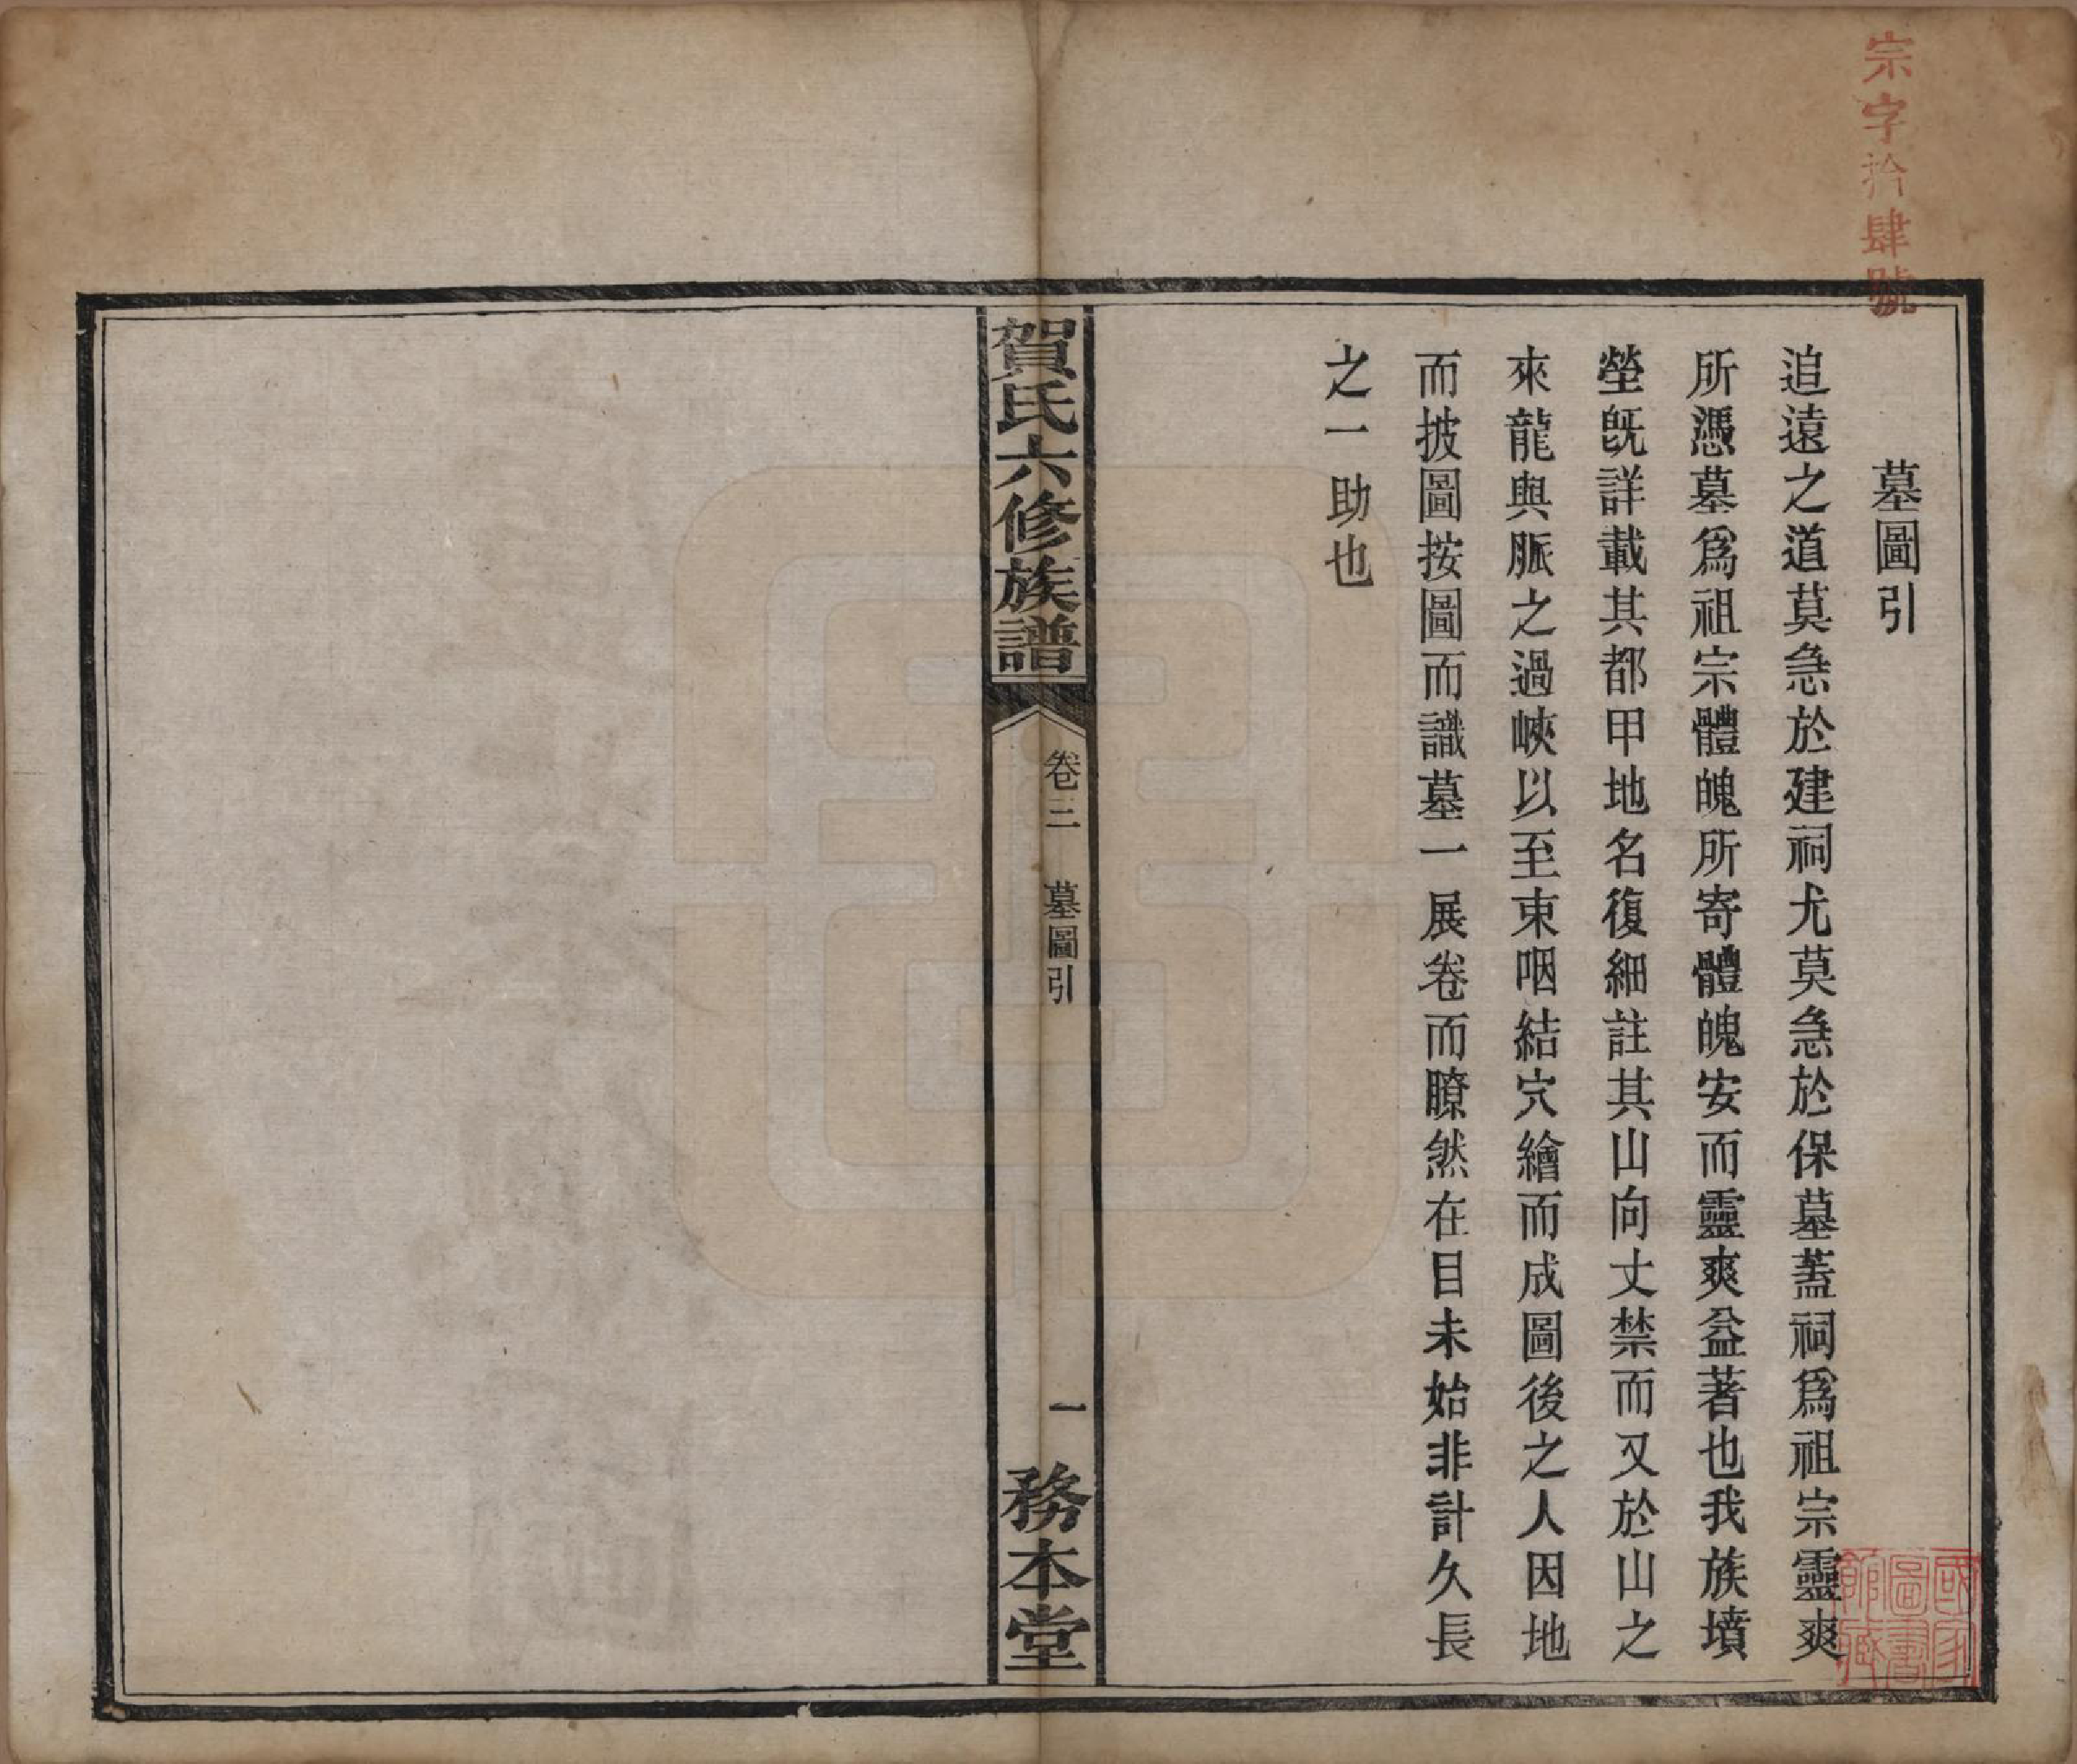 宗字拾肆號
墓圖引
追遠之道莫急於建祠尤莫急於保墓蓋祠爲祖宗靈爽
所憑墓爲祖宗體魄所寄體魄安而靈爽益著也我族墳
塋旣詳載其都甲地名復細註其山向丈禁而又於山之
來龍與脈之過峽以至束咽結穴繪而成圖後之人因地
而披圖按圖而識墓一展卷而瞭然在目未始非計久長
之一助也
賀氏六修族譜
卷三 墓圖引
一
務本堂
國家圖書館藏